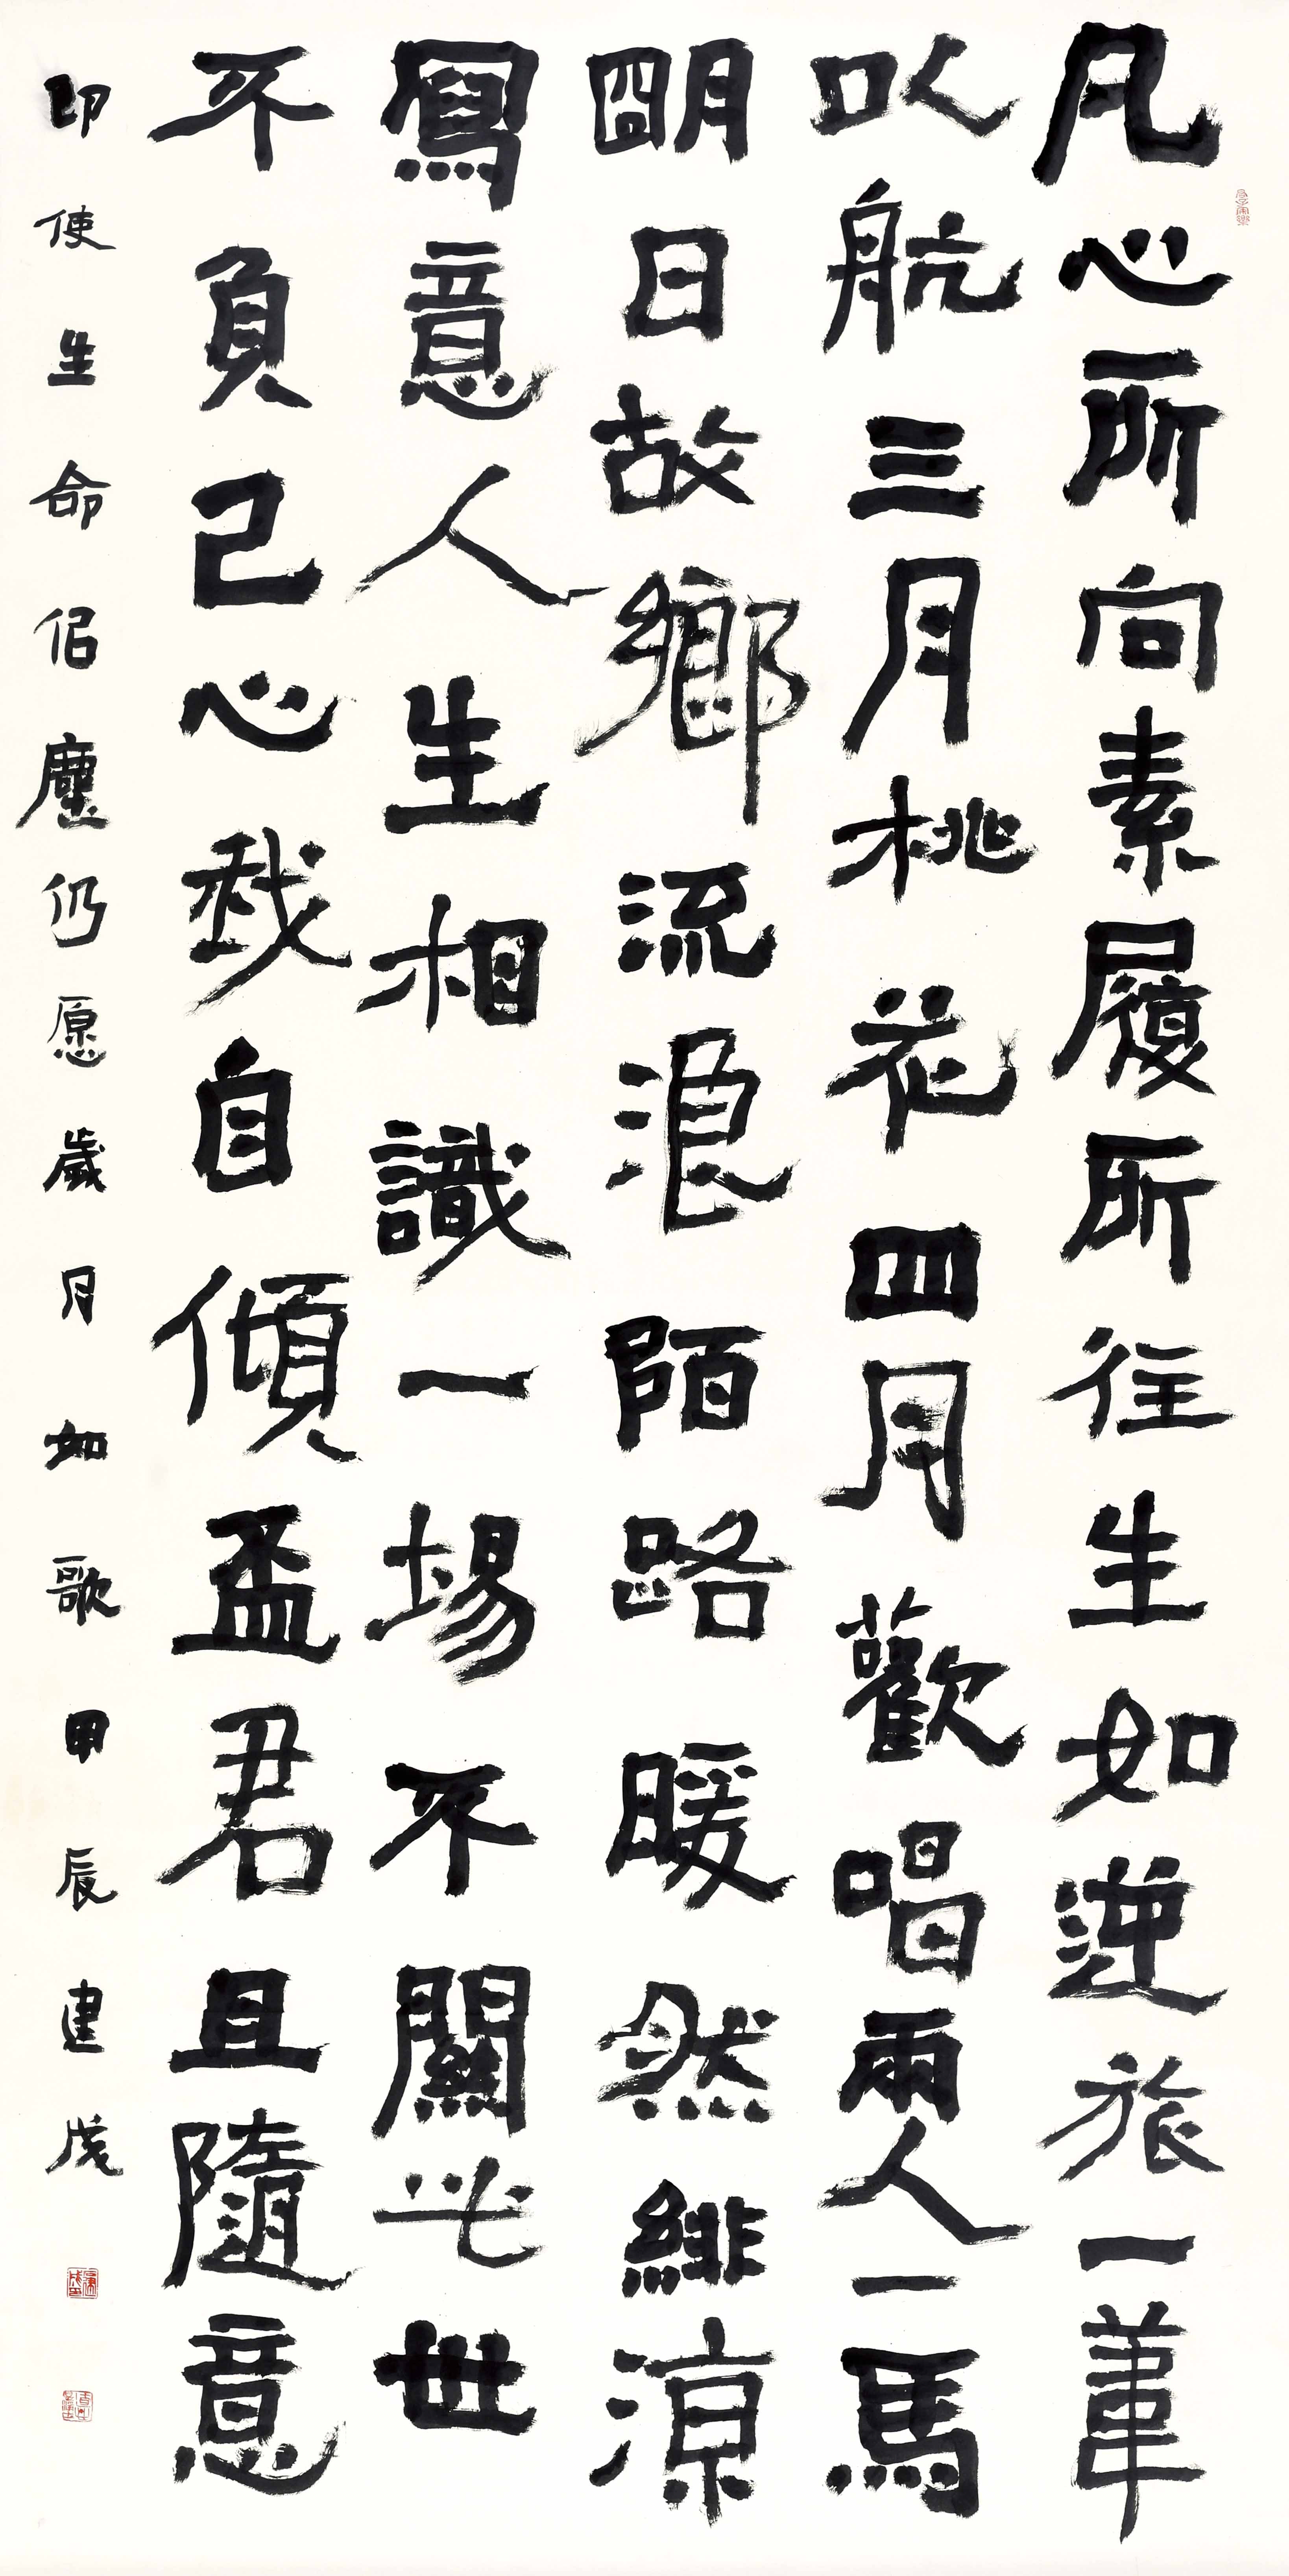 凡心所向素履所往生如逆旅一葦
以航三月桃花四月歡唱兩人一馬
明日故鄉流浪陌路暖然緋涼
寫意人生相識一場不關世
不負己心我自傾盃君且隨意
即使生命佀塵仍愿歲月如歌甲辰建成